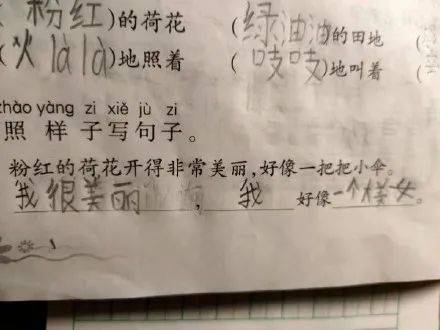 (粉红)的荷花 (绿油油的田地
(火 là là)地照着 (吱吱)地叫着
zhào yàng zi xiě jù zi
照样子写句子。
粉红的荷花开得非常美丽,好像一把把小伞。
我很美丽,我好像一个大美女。